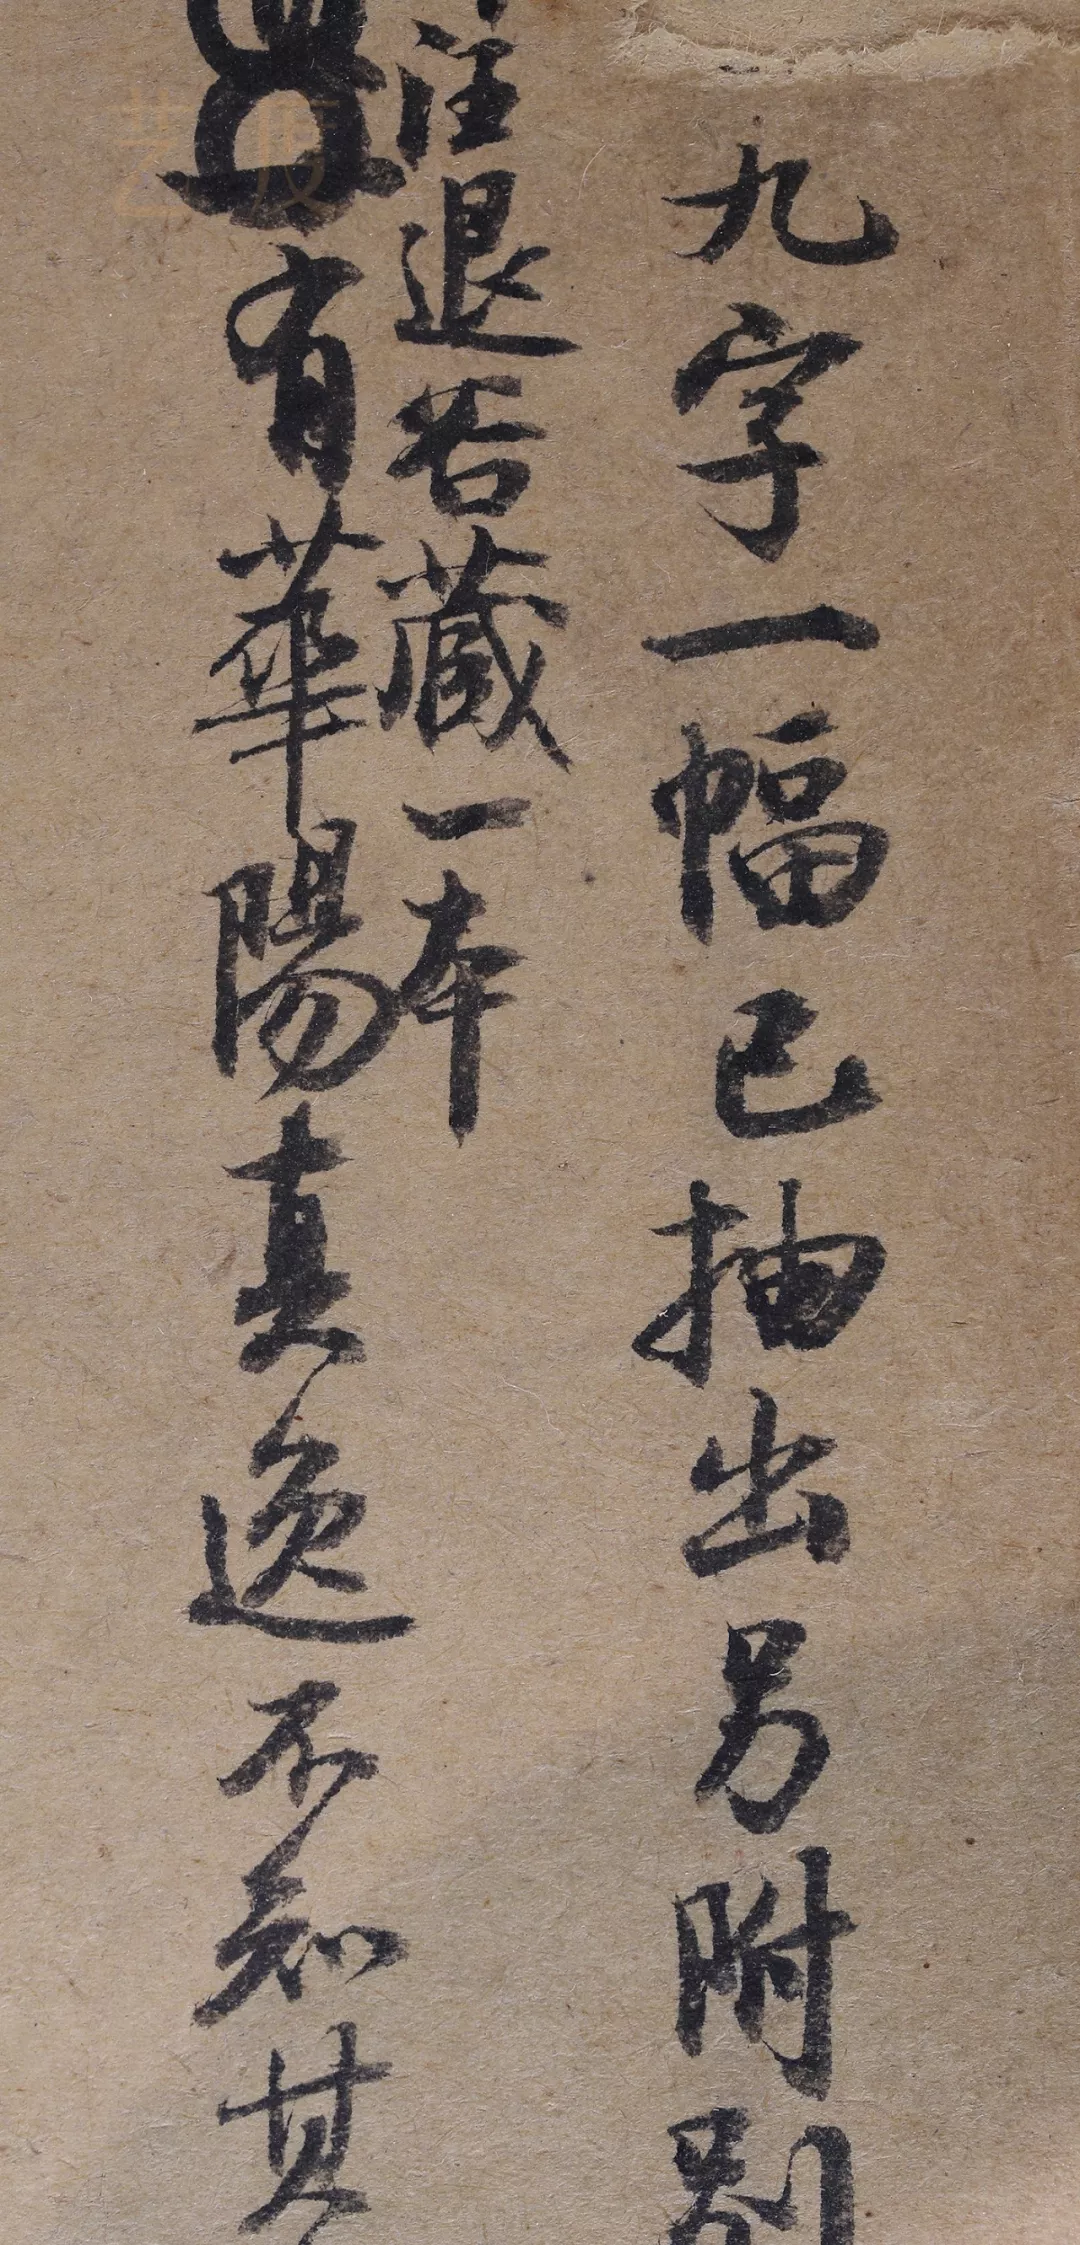 九字一幅已抽出另附別
注退谷藏一本
有華陽真逸不知其
艺度